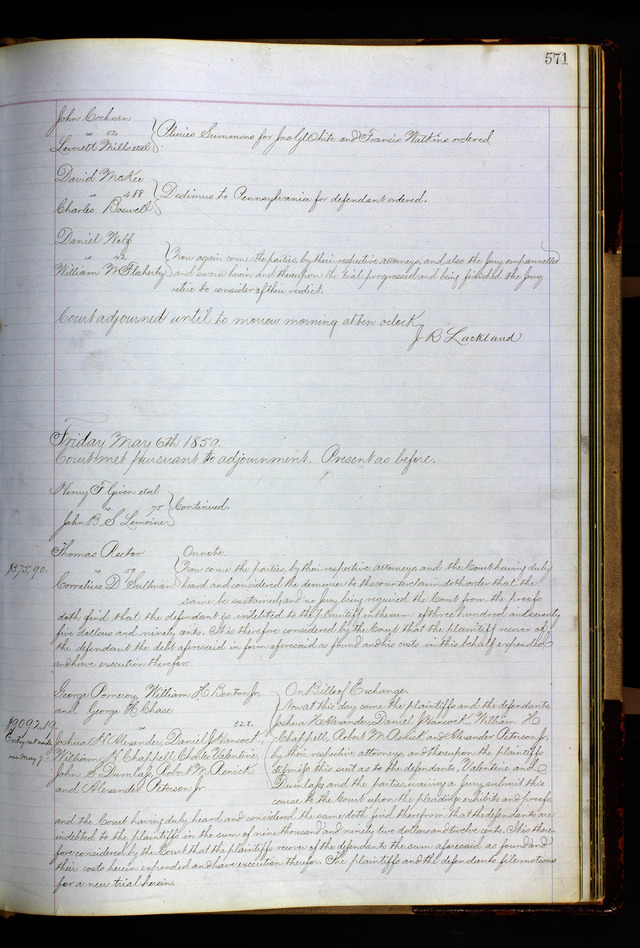 571
John Cochran
vs 62 } Pluries Summons for Jno G White and Francis Watkins ordered
Leverett Mills et al
David McKee
" 488 } Dedimus to Pennsylvania for defendant ordered.
Charles Boswell
Daniel Wolf
" 42 } Now again come the parties, by their respective attorneys, and also the Jury empannelled
William McFlaherty and sworn herein and thereupon the trial progressed and being finished the Jury
retire to consider of their verdict.
Court adjourned until to morrow morning at ten oclock
J R Lackland
Friday May 6th 1859.
Court met pursuant to adjournment. Present as before.
Henry T Given et al
" 75 } Continued.
John B S Lemoine
Thomas Rector On note.
$375.90. Now come the parties, by their respective attorneys and the Court having duly
Cornelius D Sullivan heard and considered the demurrer to the counterclaim doth order that the
same be sustained, and no Jury being required the Court from the proofs
doth find that the defendant is indebted to the plaintiff in the sum of three hundred and seventy
five dollars and ninety cents. It is therefore considered by the Court that the plaintiff recover of
the defendant the debt aforesaid in form aforesaid as found and his costs in this behalf expended
and have execution therefor.
George Pomeroy, William H Benton Jr. On Bills of Exchange.
and George H Chase Now at this day come the plaintiffs and the defendants,
$9092.19 " 528. Joshua H Alexander, Daniel J Hancock, William H
Entry set aside Joshua H Alexander, Daniel J Hancock, Chappell, Robert M Renick and Alexander Peterson Jr,
see May 7 William H Chappell, Charles Valentine, by their respective attorneys, and thereupon the plaintiffs
John S Dunlap, Robert M Renick dismiss this suit as to the defendants, Valentine and
and Alexander Peterson Jr Dunlap, and the parties waiving a jury submit this
cause to the Court upon the pleadings exhibits and proofs
and the Court having duly heard and considered the same doth find therefrom that the defendants are
indebted to the plaintiffs in the sum of nine thousand and ninety two dollars and twelve cents. It is there
fore considered by the Court that the plaintiffs recover of the defendants the sum aforesaid as found and
their costs herein expended and have execution therefor. The plaintiffs and the defendants file motions
for a new trial herein.